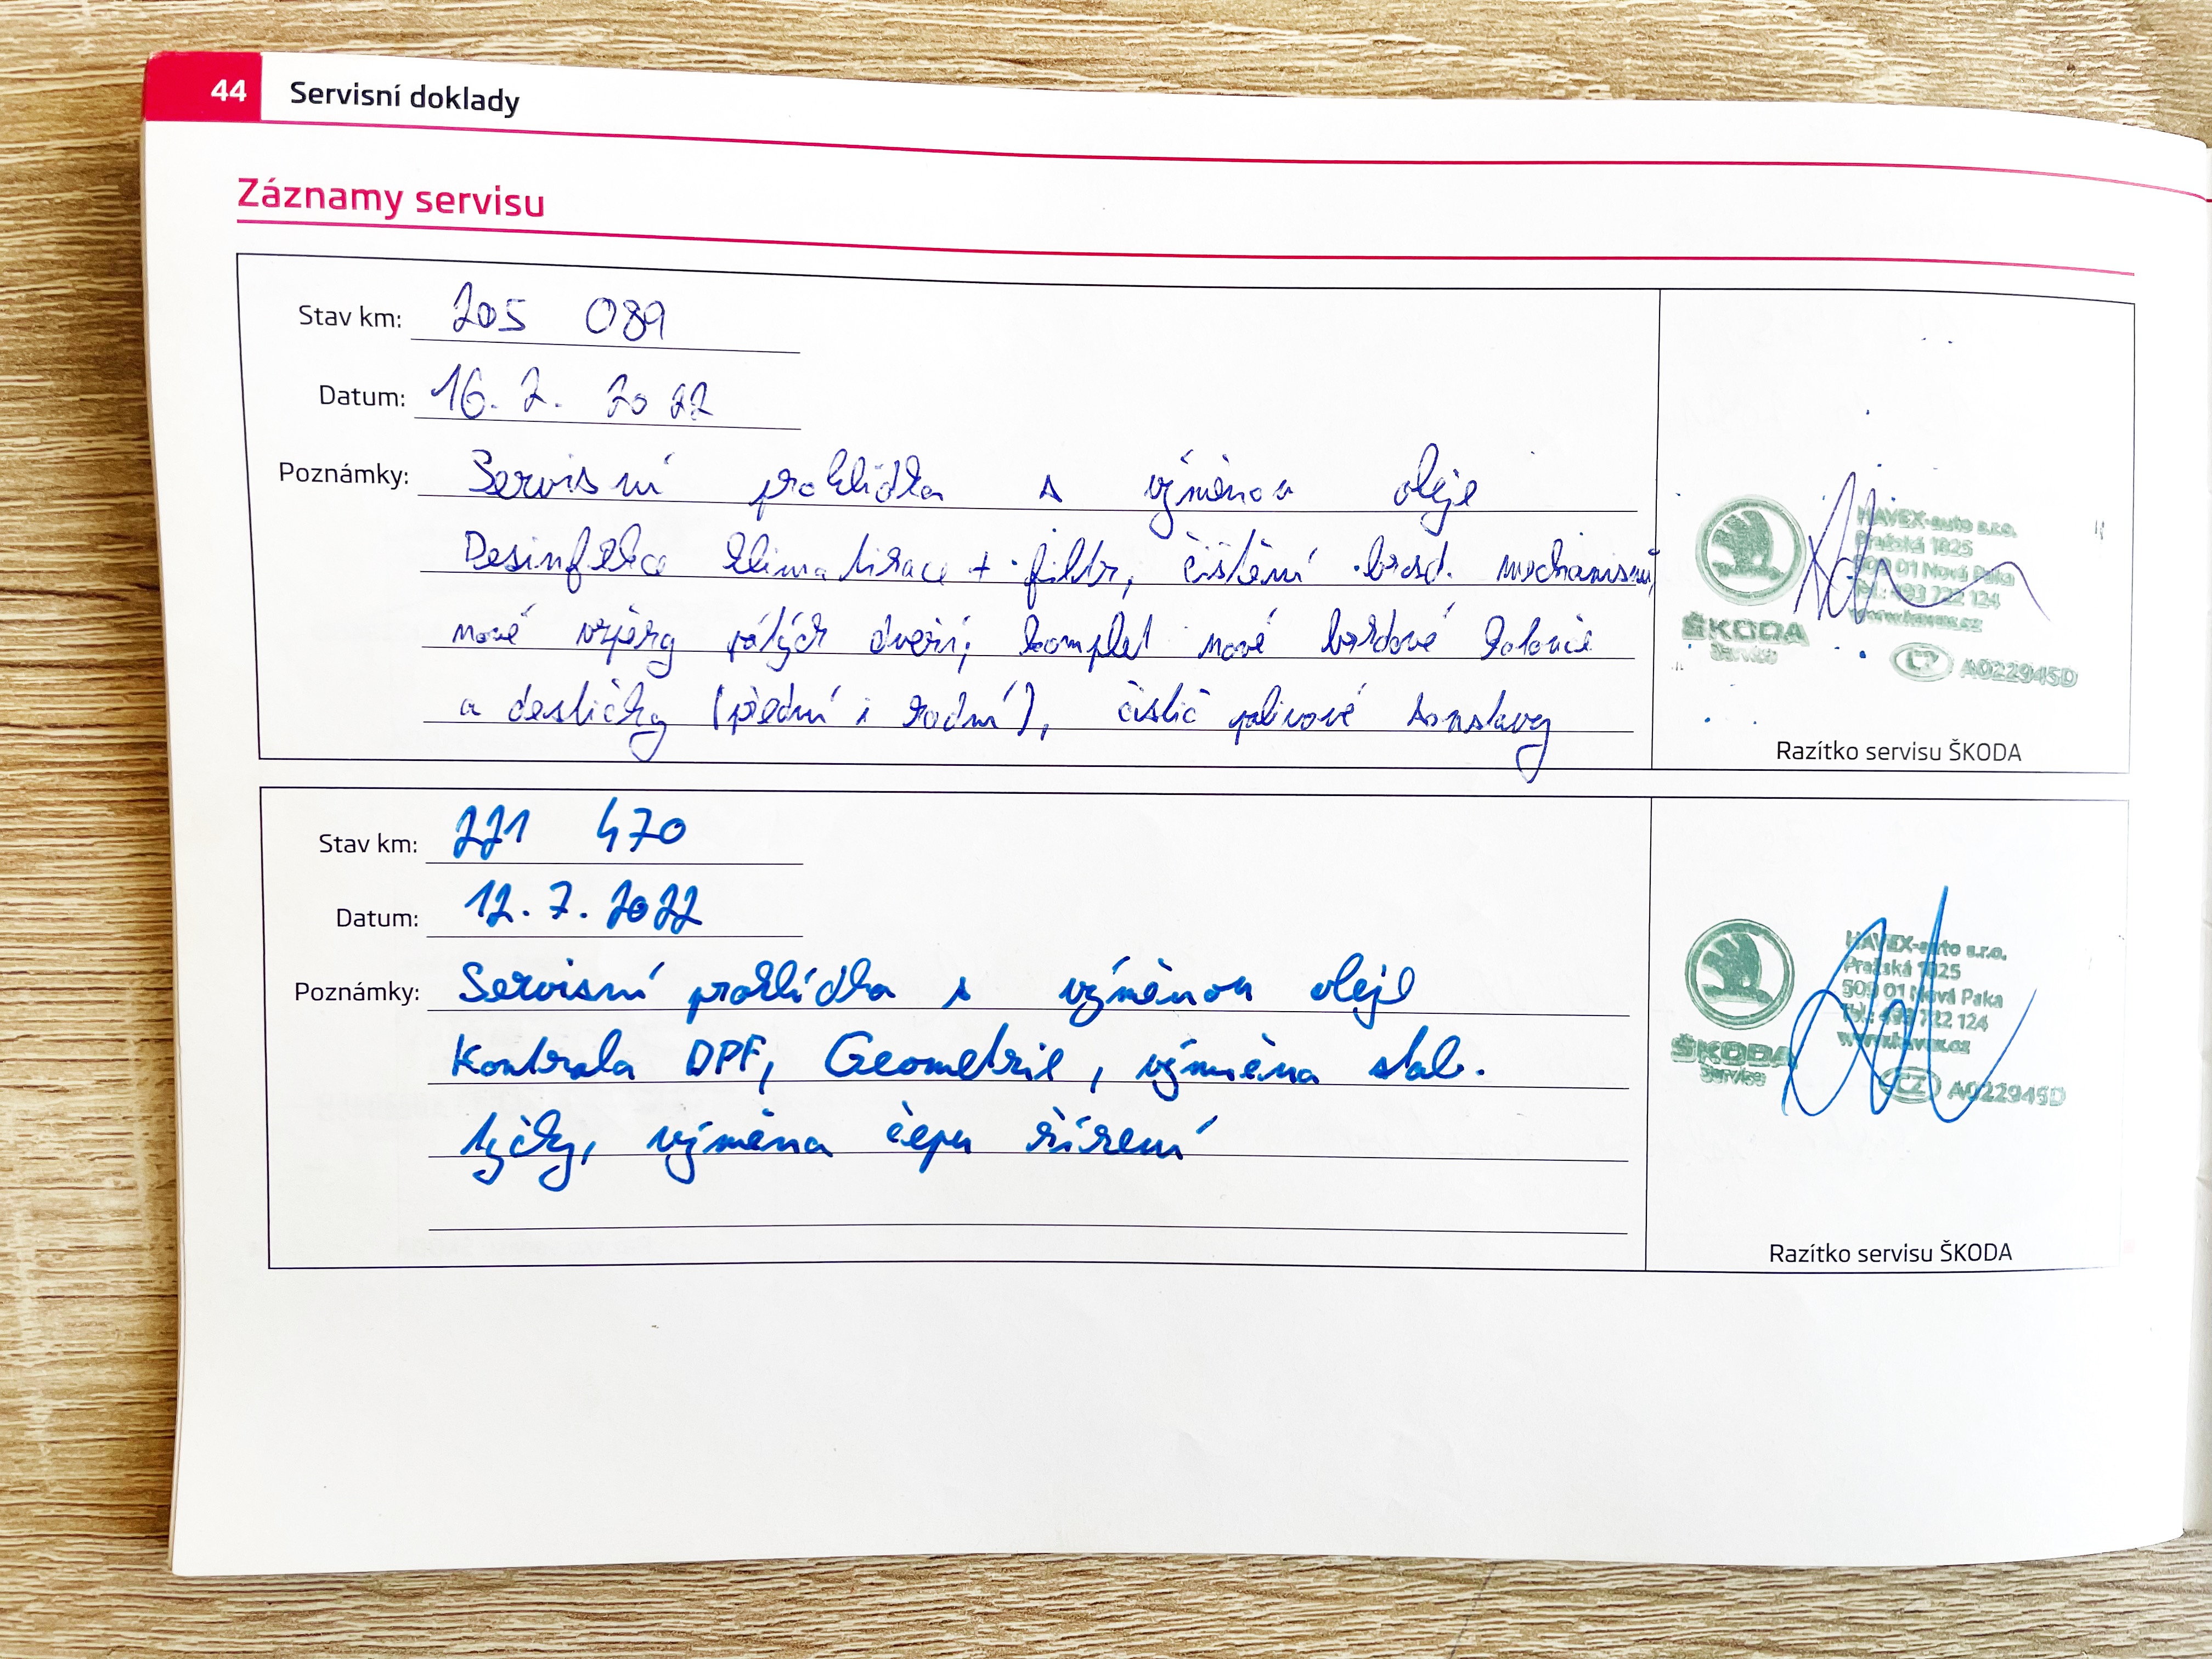 44 Servisní doklady
Záznamy servisu
Stav km: 205 089
Datum: 16. 2. 2022
Poznámky: Servisní prohlídka s výměnou oleje
Desinfekce klimatizace + filtr, čištění brzd. mechanismů,
nové vzpěry pátých dveří, komplet nové brzdové kotouče
a destičky (přední i zadní), čistič palivové soustavy
HAVEX-auto s.r.o.
Pražská 1825
509 01 Nová Paka
Tel.: 493 722 124
www.havex.cz
ŠKODA
Service
CZ A022945D
Razítko servisu ŠKODA
Stav km: 221 470
Datum: 12. 7. 2022
Poznámky: Servisní prohlídka s výměnou oleje
Kontrola DPF, Geometrie, výměna stab.
tyčky, výměna čepu řízení
HAVEX-auto s.r.o.
Pražská 1825
509 01 Nová Paka
Tel.: 493 722 124
www.havex.cz
ŠKODA
Service
CZ A022945D
Razítko servisu ŠKODA